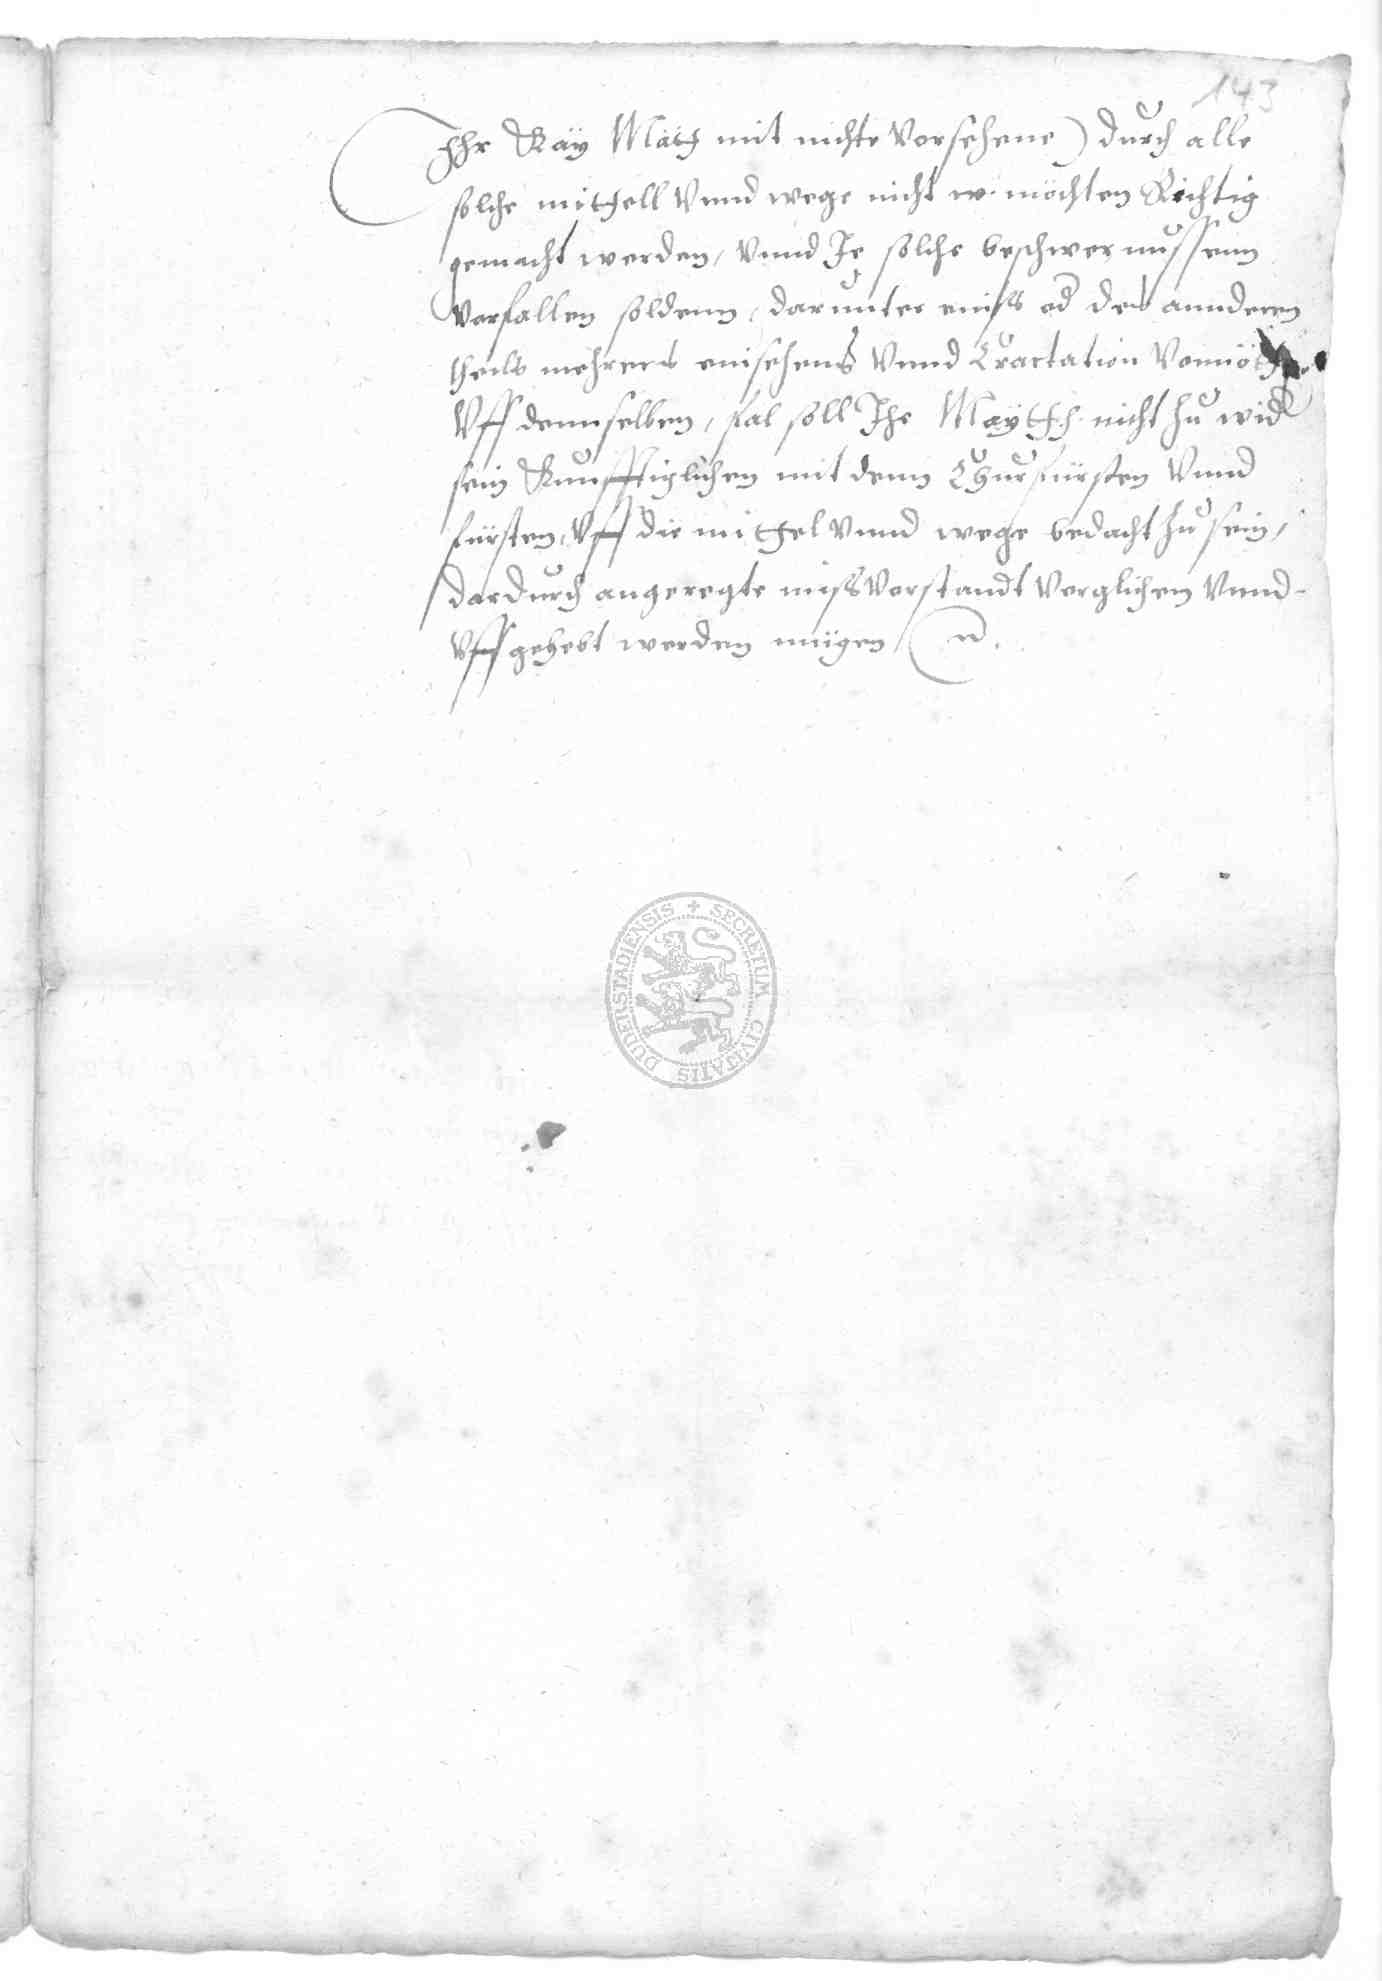 143
Ihr Kay Matt mit nichte Vorsehene) durch alle
solche mittell Vnnd wege nicht möchten Richtig
gemacht werden, Vnnd Je solche beschwernussenn
Vorfallen soldenn, darunter eniss od des annderen
theils mehrers einsehens Vnnd Tractation
Vff dennselben, fal soll Ihe Maytt. nicht zu wid
sein Kunfftiglichen mit denn Churfürsten Vnnd
fürsten, Vff die mittel Vnnd wege bedacht zu sein,
dardurch angeregte missVorstandt Verglichen Vnnd
Vffgehebt werden mügen
SECRETUM CIVITATIS DUDERSTADIENSIS